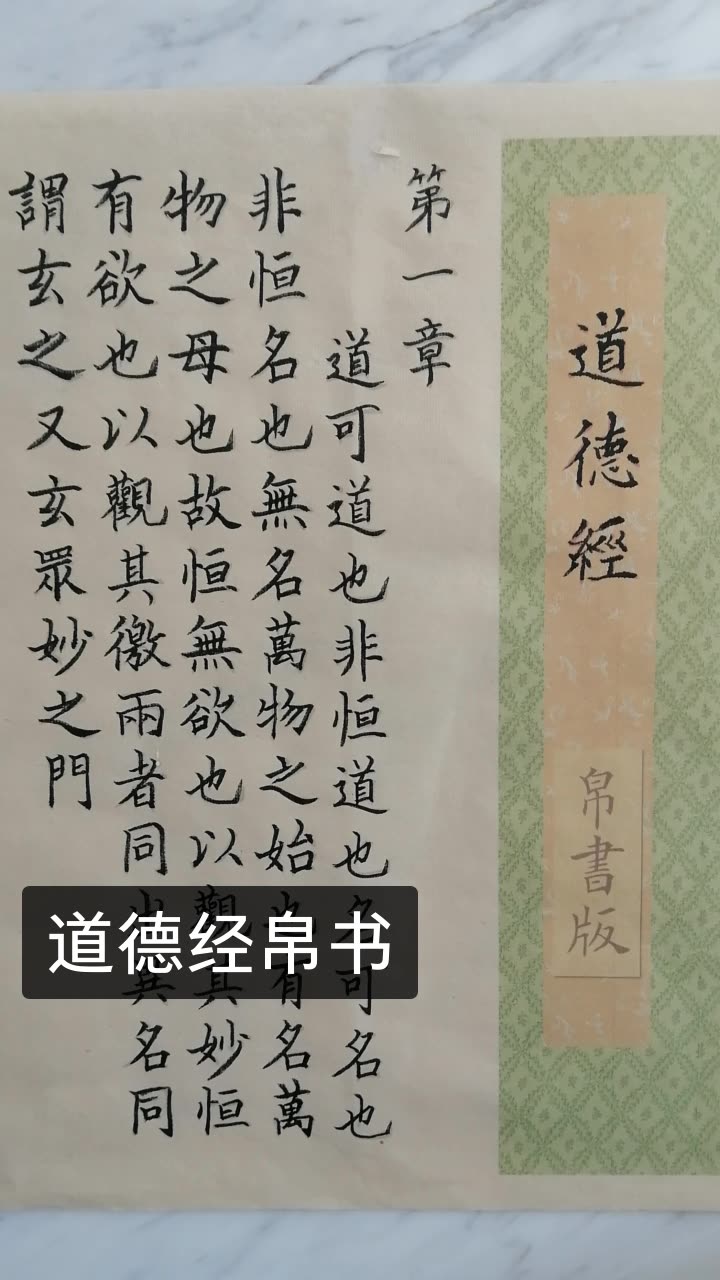 道德經
帛書版
第一章
道可道也非恒道也名可名也
非恒名也無名萬物之始也有名萬
物之母也故恒無欲也以觀其妙恒
有欲也以觀其徼兩者同出異名同
謂玄之又玄眾妙之門
道德经帛书